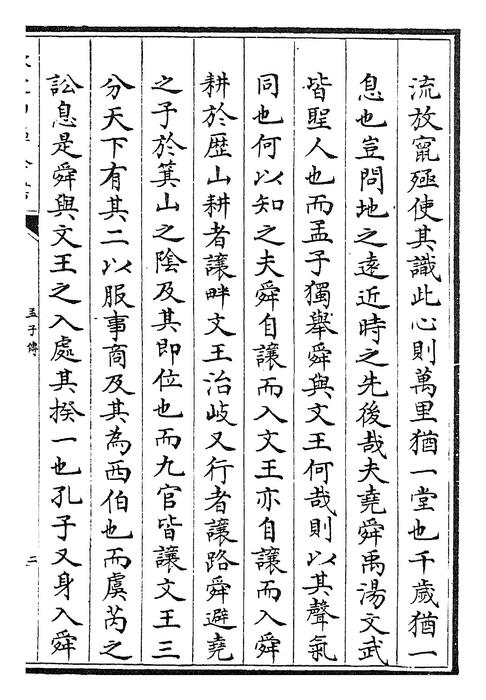 流放竄殛使其識此心則萬里猶一堂也千歲猶一
息也豈問地之遠近時之先後哉夫堯舜禹湯文武
皆聖人也而孟子獨舉舜與文王何哉則以其聲氣
同也何以知之夫舜自讓而入文王亦自讓而入舜
耕於歴山耕者讓畔文王治岐又行者讓路舜避堯
之子於箕山之陰及其即位也而九官皆讓文王三
分天下有其二以服事商及其為西伯也而虞芮之
訟息是舜與文王之入處其揆一也孔子又身入舜
孟子傳
二